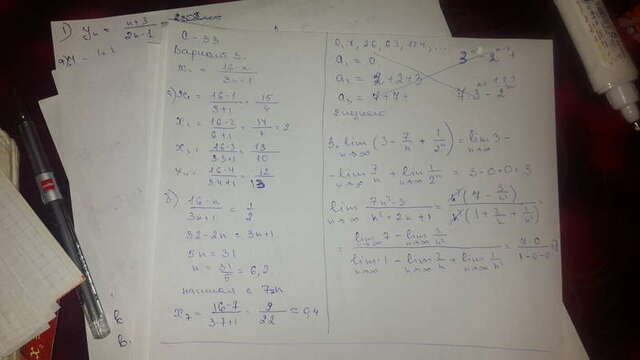 1) yₙ = n+3 / 2n-1 =
С-33
Вариант 3.
xₙ = 16-n / 3n+1
а) x₁ = 16-1 / 3+1 = 15 / 4
x₂ = 16-2 / 6+1 = 14 / 7 = 2
x₃ = 16-3 / 3·3+1 = 13 / 10
x₄ = 16-4 / 3·4+1 = 12 / 13
б)
16-n / 3n+1 = 1 / 2
32-2n = 3n+1
5n = 31
n = 31 / 5 = 6,2
начиная с 7
x₇ = 16-7 / 3·7+1 = 9 / 22 ≈ 0,4
0, 7, 26, 63, 124, ...
a₁ = 0
a₂ = 2+2+3
a₃ = 7+7+
3. lim n→∞ (3 - 7/n + 1/2ⁿ) = lim n→∞ 3 -
- lim n→∞ 7/n + lim n→∞ 1/2ⁿ = 3-0+0=3
lim n→∞ 7n²-3 / n²+2n+1 = n²(7 - 3/n²) / n²(1+ 2/n + 1/n²) =
= lim n→∞ 7 - lim n→∞ 3/n² / lim n→∞ 1 - lim n→∞ 2/n + lim n→∞ 1/n² = 7-0 / 1-0-0